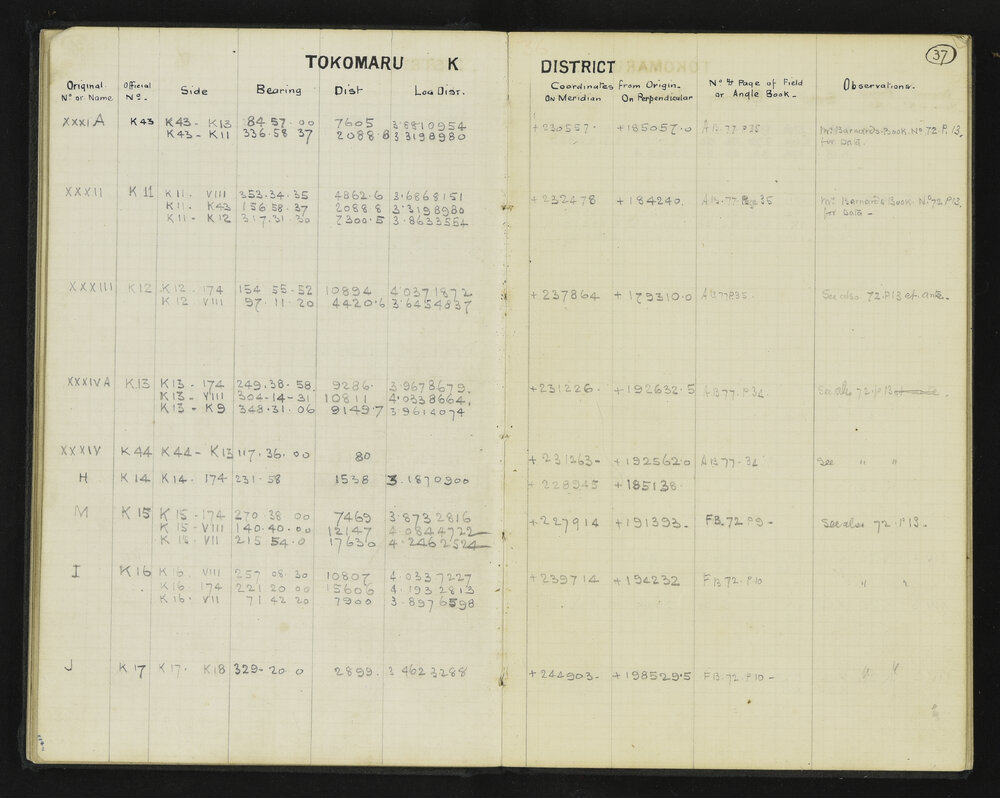 37
TOKOMARU K DISTRICT
Original Official Side Bearing Dist Log Dist. Coordinates from Origin. Nº & Page of Field Observations.
Nº or Name Nº. On Meridian On Perpendicular or Angle Book.
XXXI A K43 K43 - K13 84 57. 00 7605 3.8810954 +230557. +185057.0 AB.77.P35 Mr Barnard's Book. Nº 72. P. 13.
K43 - K11 336.58 37 2088.8 3.3198980 for Data.
XXXII K11 K11. VIII 353.34.35 4862.6 3.6868151 +232478 +184240. AB.77.Page 35 Mr Barnard's Book. Nº 72 P13,
K11. K43 156 58.37 2088 8 3.3198980 for Data -
K11 - K12 317.31.30 7300.5 3.8633554
XXXIII K12 K12. 174 154 55-52 10894 4.0371872 +237864 +179310.0 AB77P35. See also 72.P13 et. ante.
K12 VIII 97.11.20 4420.6 3.6454837
XXXIV A K13 K13 - 174 249.38.58. 9286. 3.9678679. +231226. +192632.5 AB77.P34 See also 72.p13
K13 - VIII 304-14-31 10811 4.0338664.
K13 - K9 348.31.06 9149.7 3.9614074
XXXIV K44 K44 - K13 117.36.00 80 +231263- +192562.0 AB77-34 See " "
H K14 K14. 174 231.58 1538 3.1870900 +228945 +185138.
M K15 K15 - 174 270.38 00 7469 3.8732816 +227914 +191393- F.B.72.P9- See also 72.P13-
K15 - VIII 140.40.00 12147 4.0844722
K15 - VII 215 54.0 17630 4.2462524
I K16 K16. VIII 257 08.30 10807 4.0337227 +239714 +194232 F.B.72.P10 " "
K16 174 221 20 00 15606 4.1932813
K16. VII 71 42 20 7900 3.8976598
J K17 K17. K18 329-20 0 2899. 3 4623288 +244903- +198529.5 F.B.72.P10- " "